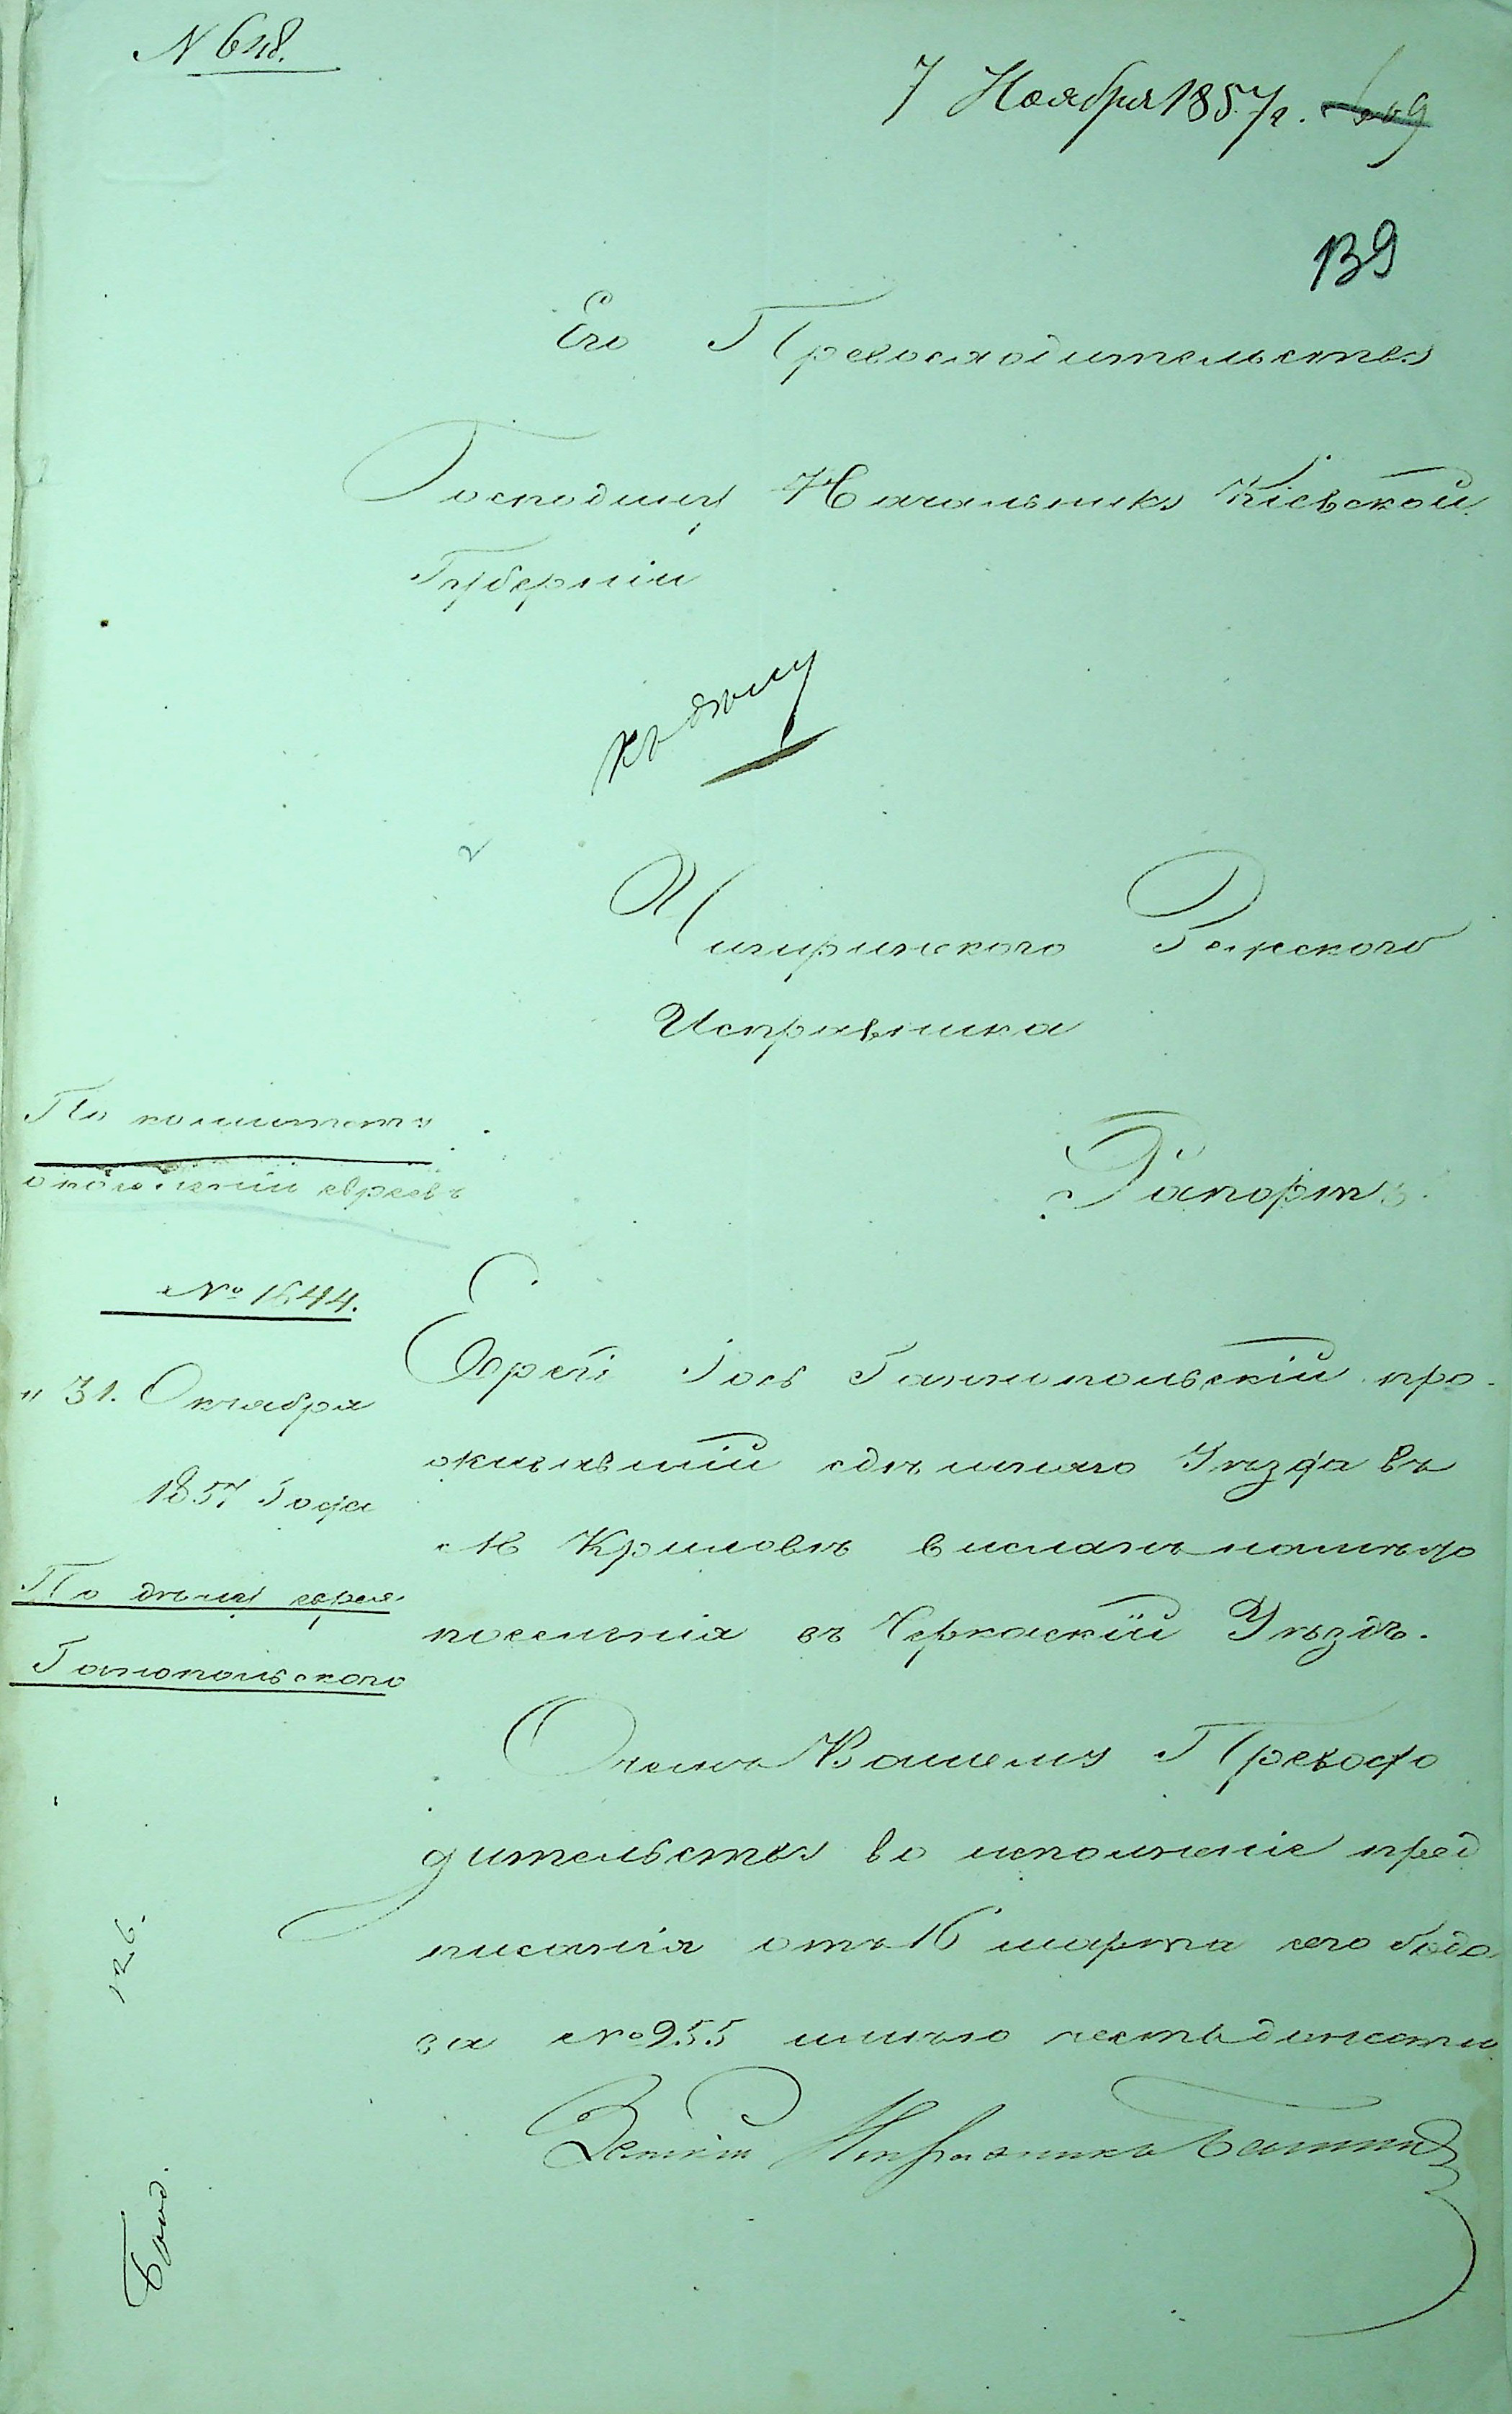 N 648.
7 Ноября 1857 г.
139
Его Превосходительству
Господину Начальнику Кіевской
Губерніи
къ дѣлу
Чигиринского Земского
Исправника
По комитету
о поселеніи евреевъ
Рапортъ.
№ 1644.
" 31. Октября
1857 Года
По дѣлу еврея
Ганопольского
Еврей Іось Ганопольскій про-
живавшій здѣшняго Уѣзда въ
М Крыловѣ высланъ
поселенія въ Черкаскій Уѣздъ.
О чемъ Вашему Превосхо
дительству во исполненіе пред
писанія отъ 16 марта сего года
за № 955 имѣю честь донести
Земскій Исправникъ